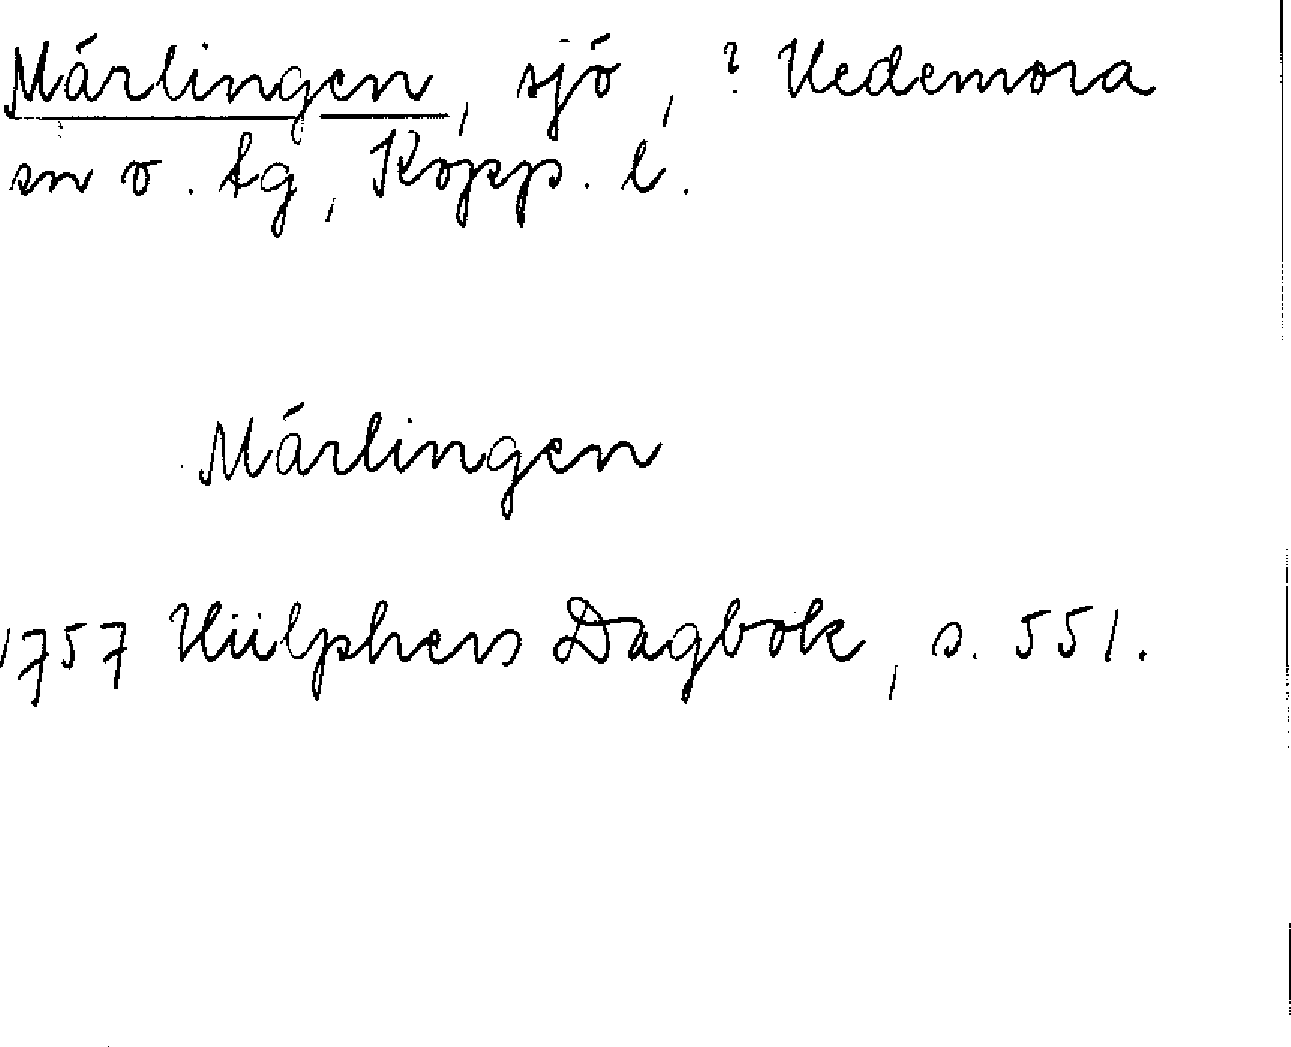 Märlingen, sjö, ? Hedemora
sn o. tg, Kopp. l.
Märlingen
1757 Hülphers Dagbok, s. 551.